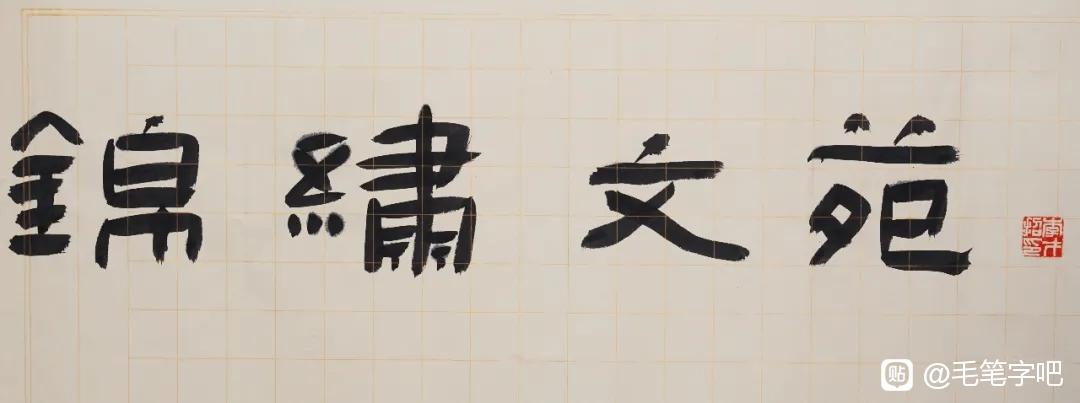 錦繡文苑
贴 @毛笔字吧